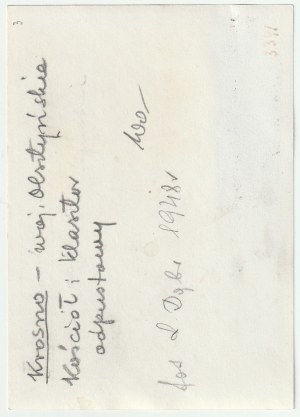 Krosno – woj. Olsztyńskie
Kościół i klasztor
odpustowy
fot 1948 r